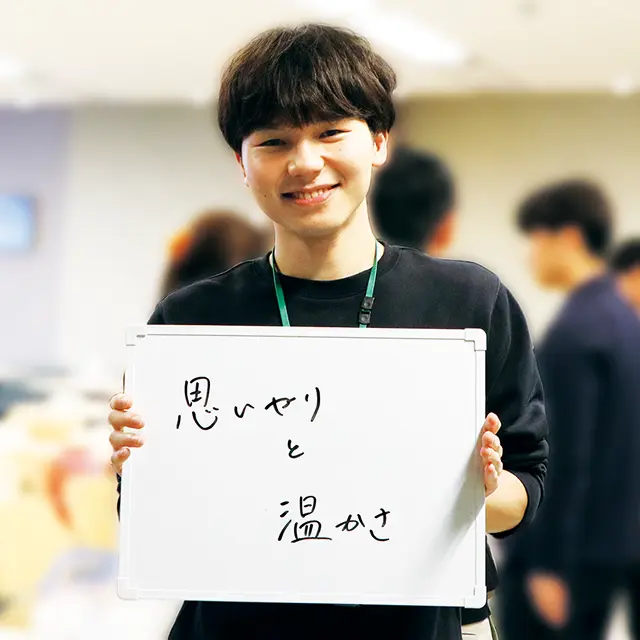 思いやり
と
温かさ